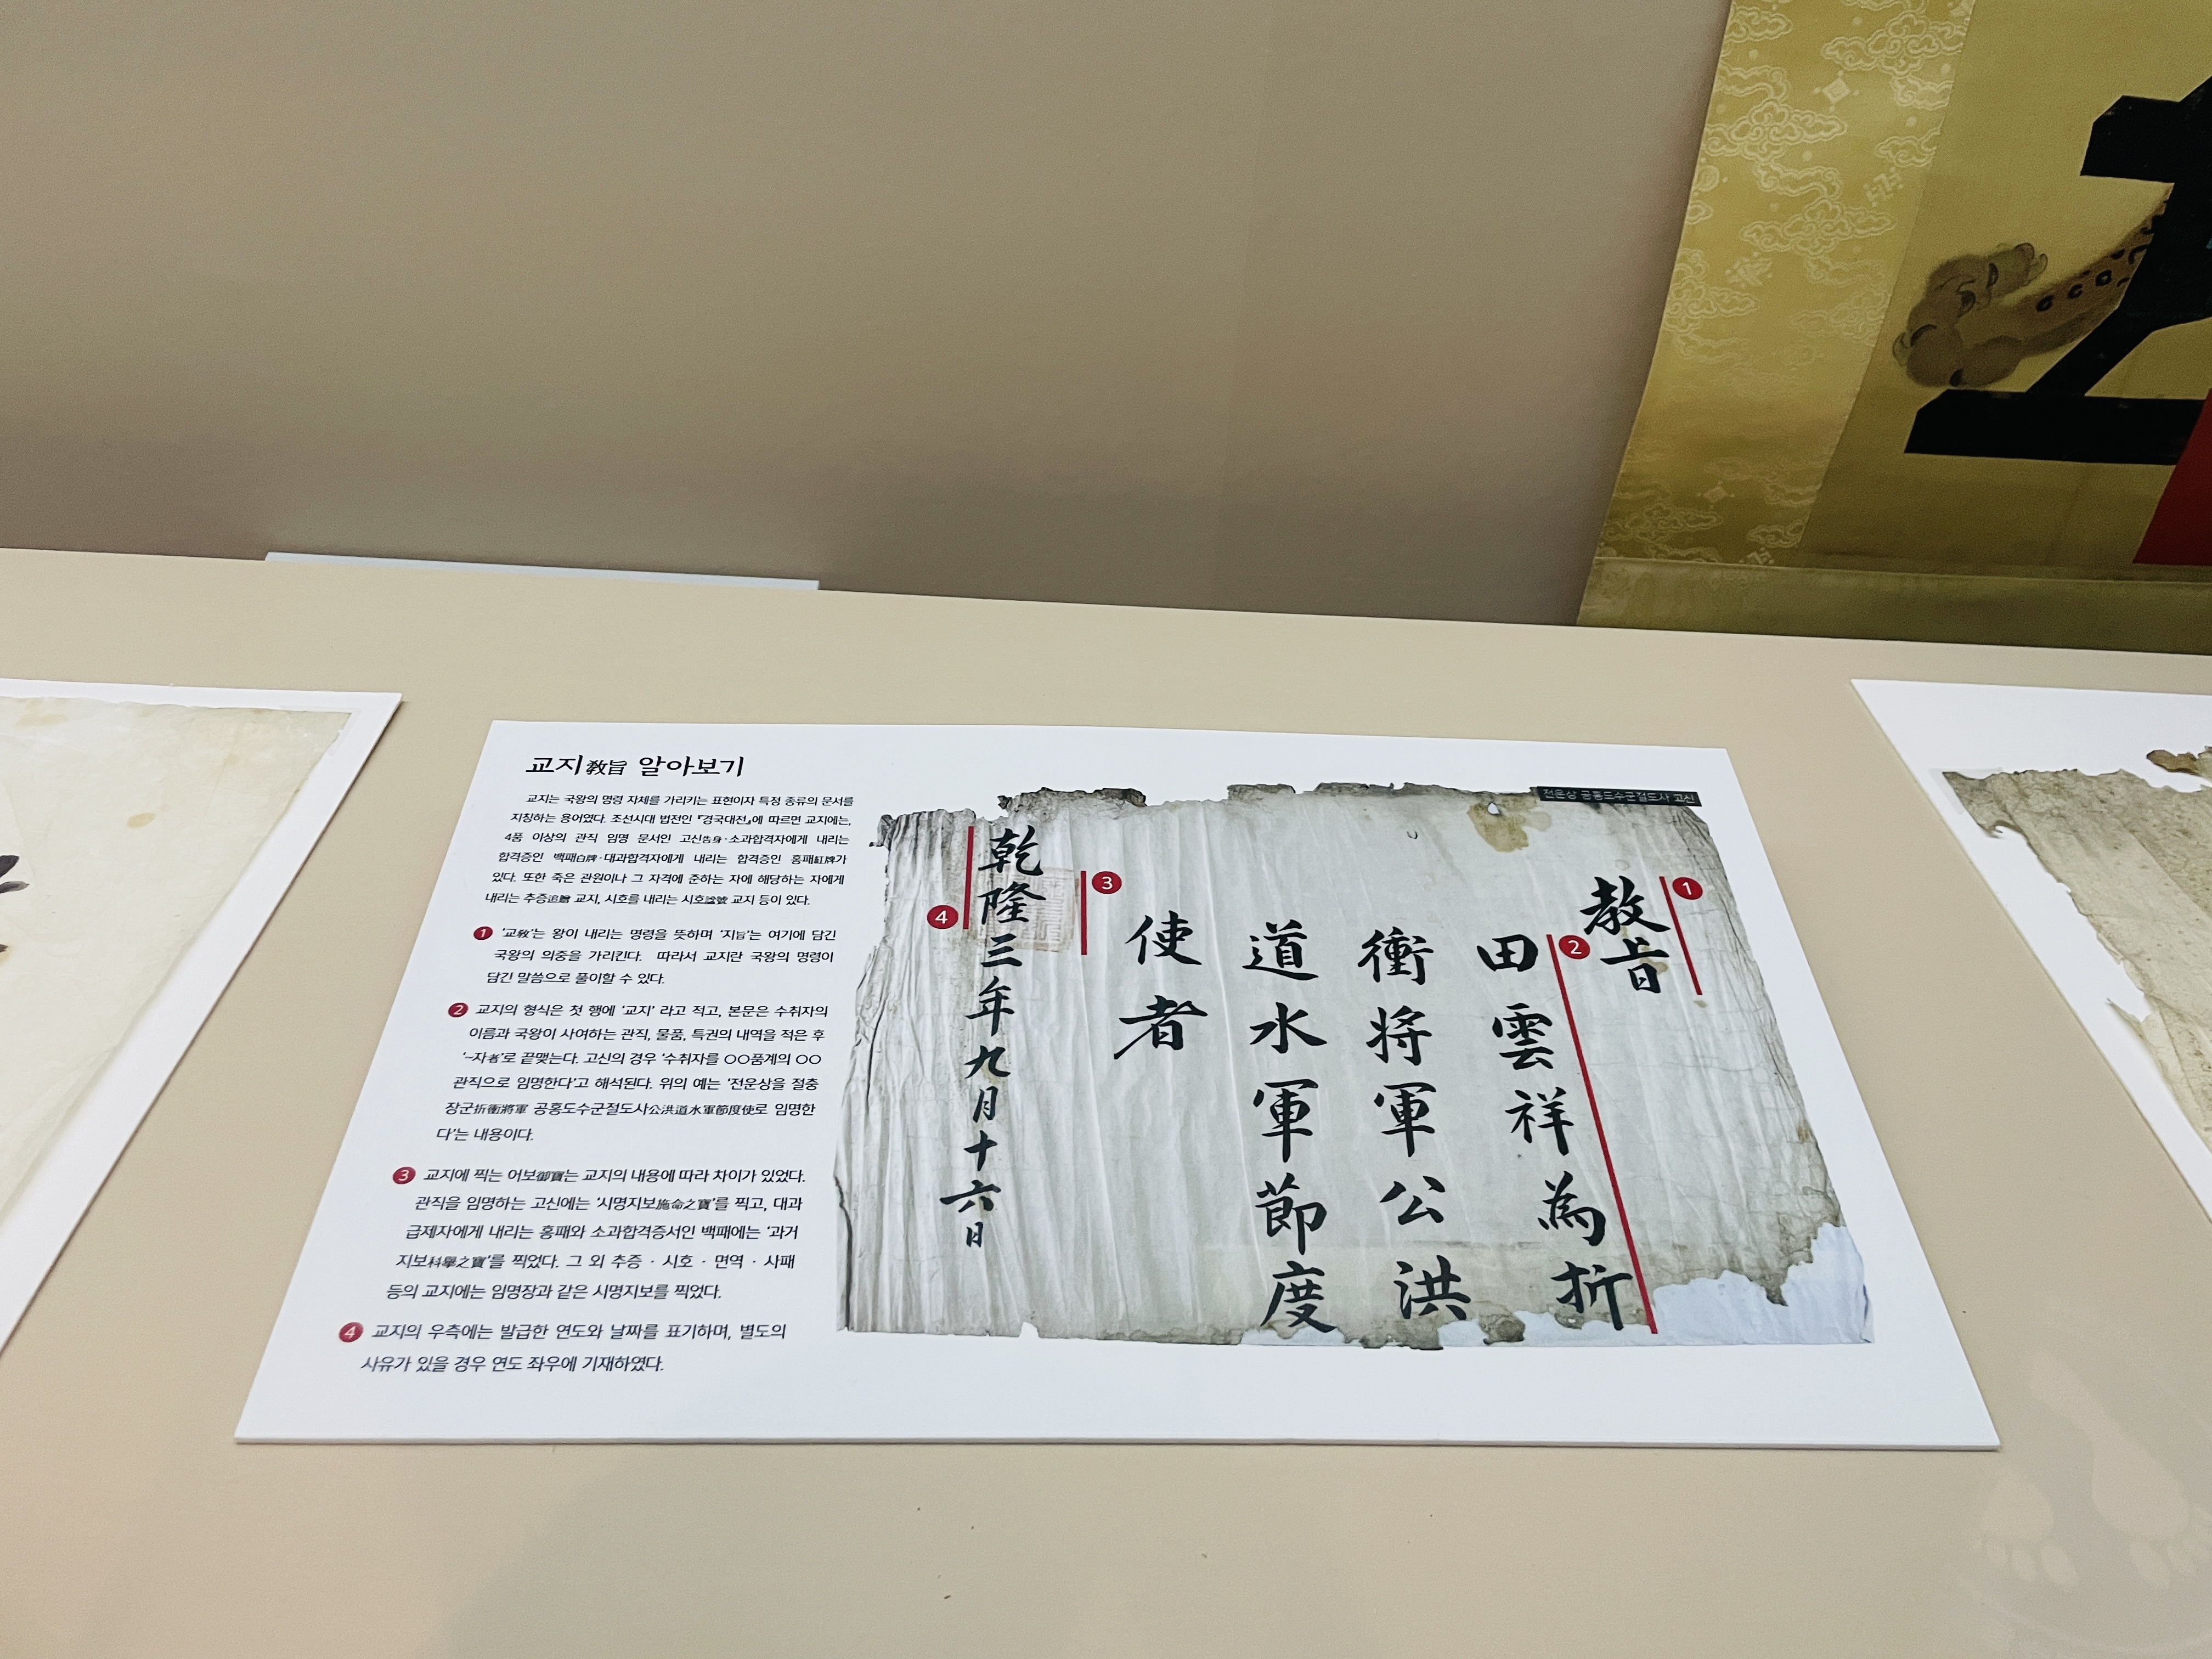 교지敎旨 알아보기
교지는 국왕의 명령 자체를 가리키는 표현이자 특정 종류의 문서를
지칭하는 용어였다. 조선시대 법전인 『경국대전』에 따르면 교지에는,
4품 이상의 관직 임명 문서인 고신告身·소과합격자에게 내리는
합격증인 백패白牌·대과합격자에게 내리는 합격증인 홍패紅牌가
있다. 또한 죽은 관원이나 그 자격에 준하는 자에 해당하는 자에게
내리는 추증追贈 교지, 시호를 내리는 시호諡號 교지 등이 있다.
1 '교敎'는 왕이 내리는 명령을 뜻하며 '지旨'는 여기에 담긴
국왕의 의중을 가리킨다. 따라서 교지란 국왕의 명령이
담긴 말씀으로 풀이할 수 있다.
2 교지의 형식은 첫 행에 '교지' 라고 적고, 본문은 수취자의
이름과 국왕이 사여하는 관직, 물품, 특권의 내역을 적은 후
'~자者'로 끝맺는다. 고신의 경우 '수취자를 OO품계의 OO
관직으로 임명한다'고 해석된다. 위의 예는 '전운상을 절충
장군折衝將軍 공홍도수군절도사公洪道水軍節度使로 임명한
다'는 내용이다.
3 교지에 찍는 어보御寶는 교지의 내용에 따라 차이가 있었다.
관직을 임명하는 고신에는 '시명지보施命之寶'를 찍고, 대과
급제자에게 내리는 홍패와 소과합격증서인 백패에는 '과거
지보科擧之寶'를 찍었다. 그 외 추증 · 시호 · 면역 · 사패
등의 교지에는 임명장과 같은 시명지보를 찍었다.
4 교지의 우측에는 발급한 연도와 날짜를 표기하며, 별도의
사유가 있을 경우 연도 좌우에 기재하였다.
전운상 공홍도수군절도사 고신
1
敎旨
2
田雲祥為折
衝將軍公洪
道水軍節度
使者
3
乾隆三年九月十六日
4